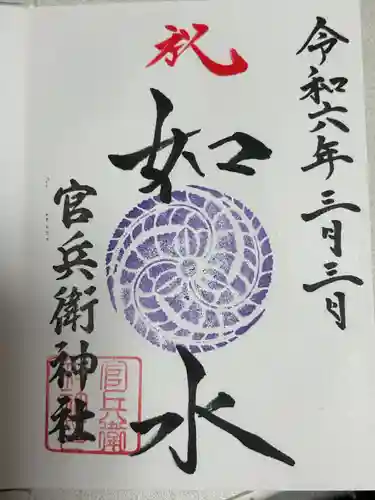 令和六年三月三日
祝
如水
官兵衛神社
官兵衛